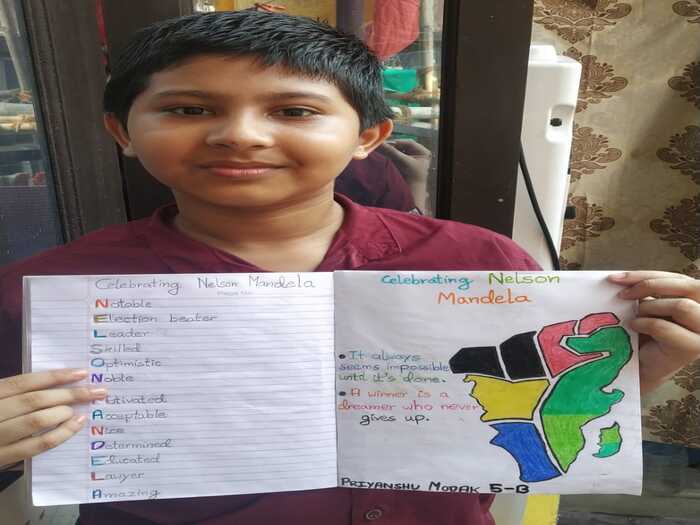 Celebrating Nelson Mandela
Notable
Election beater
Leader
Skilled
Optimistic
Noble
Motivated
Acceptable
Nice
Determined
Educated
Lawyer
Amazing
Celebrating Nelson
Mandela
• It always
seems impossible
until it's done.
• A winner is a
dreamer who never
gives up.
PRIYANSHU MODAK 5-B